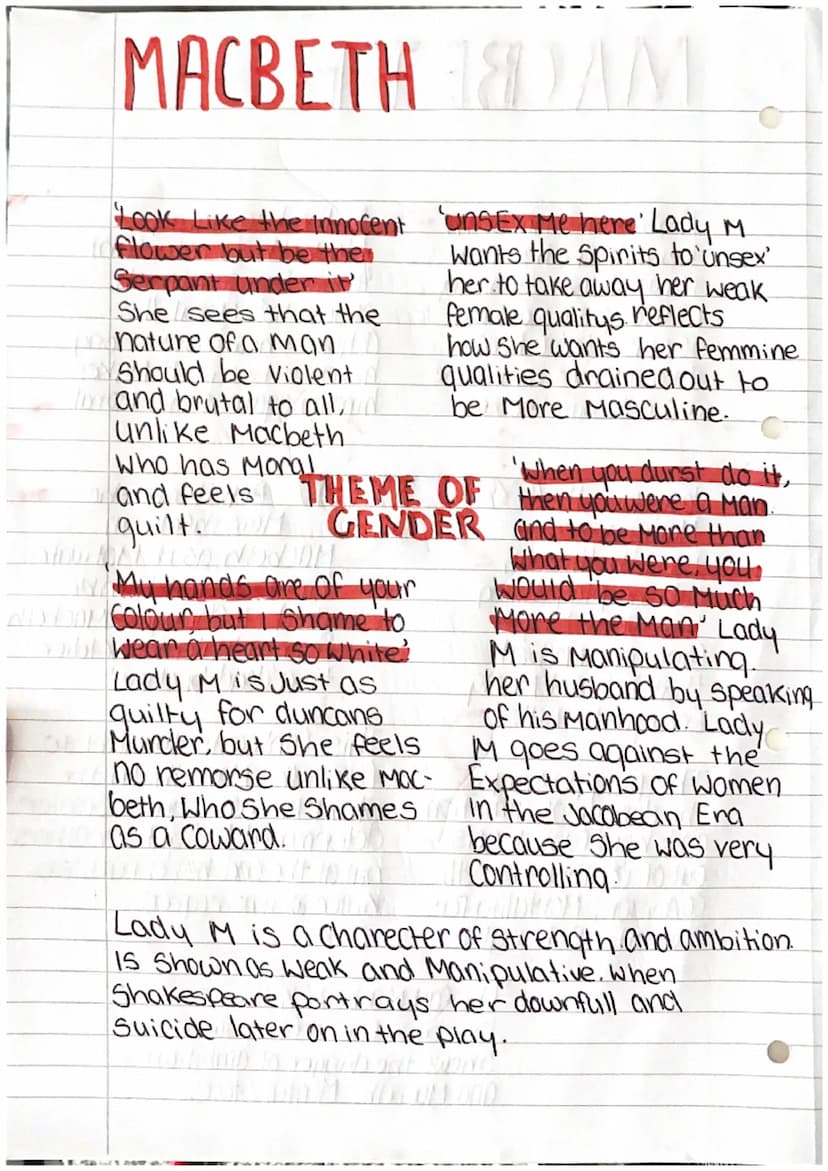 MACBETH
'Look Like the innocent
flower but be the
Serpant under it'
She sees that the
nature of a man
Should be violent
and brutal to all,
unlike Macbeth
who has moral
and feels
guilt.
'unsEx me here' Lady M
wants the spirits to 'unsex'
her. to take away her weak
female qualitys. reflects
how she wants her femmine
qualities drained out to
be More Masculine.
THEME OF
GENDER
'My hands are of your
colour, but i shame to
wear a heart so white'
Lady M is Just as
guilty for duncans
Murder, but She feels
no remorse unlike Mac-
beth, Who She Shames
as a coward.
'when you durst do it,
then you were a man.
and to be more than
what you were, you
would be so much
more the man' Lady
M is Manipulating
her husband by speaking
of his manhood. Lady
M goes against the
Expectations of women
in the Jacobean Era
because She was very
Controlling.
Lady M is a charecter of strength and ambition.
is shown as weak and Manipulative. when
Shakespeare portrays her downfull and
suicide later on in the play.